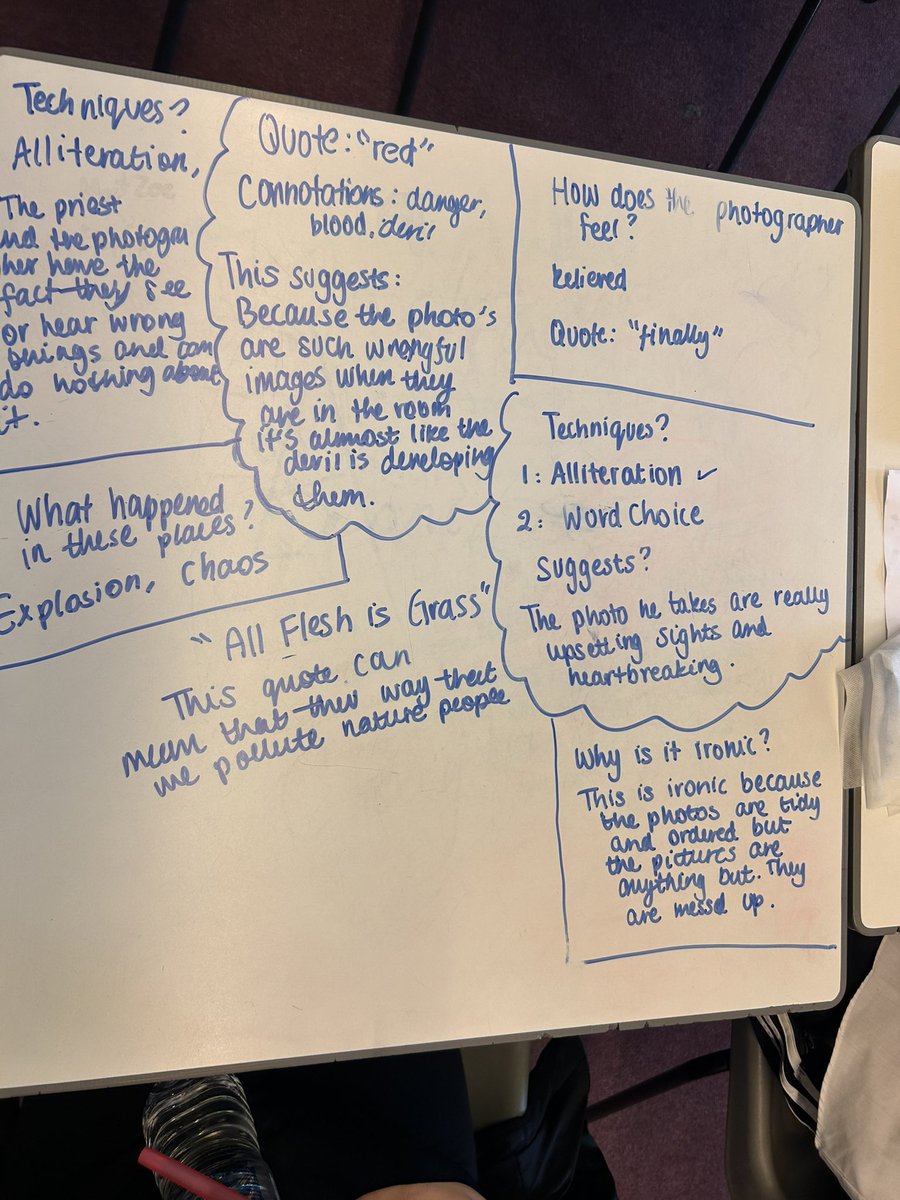 Techniques?
Alliteration,
The priest
nd the photogra
her have the
fact they see
or hear wrong
things and can
do nothing about
it.
Quote: "red"
Connotations: danger,
blood, devil
This suggests:
Because the photo's
are such wrongful
images when they
are in the room
it's almost like the
devil is developing
them.
How does the photographer
feel?
Relieved
Quote: "finally"
What happened
in these places?
Explosion, Chaos
Techniques?
1: Alliteration ✓
2: Word Choice
Suggests?
The photo he takes are really
upsetting sights and
heartbreaking.
"All Flesh is Grass"
This quote can
mean that the way that
we pollute nature people
Why is it ironic?
This is ironic because
the photos are tidy
and ordered but
the pictures are
anything but. They
are messd up.